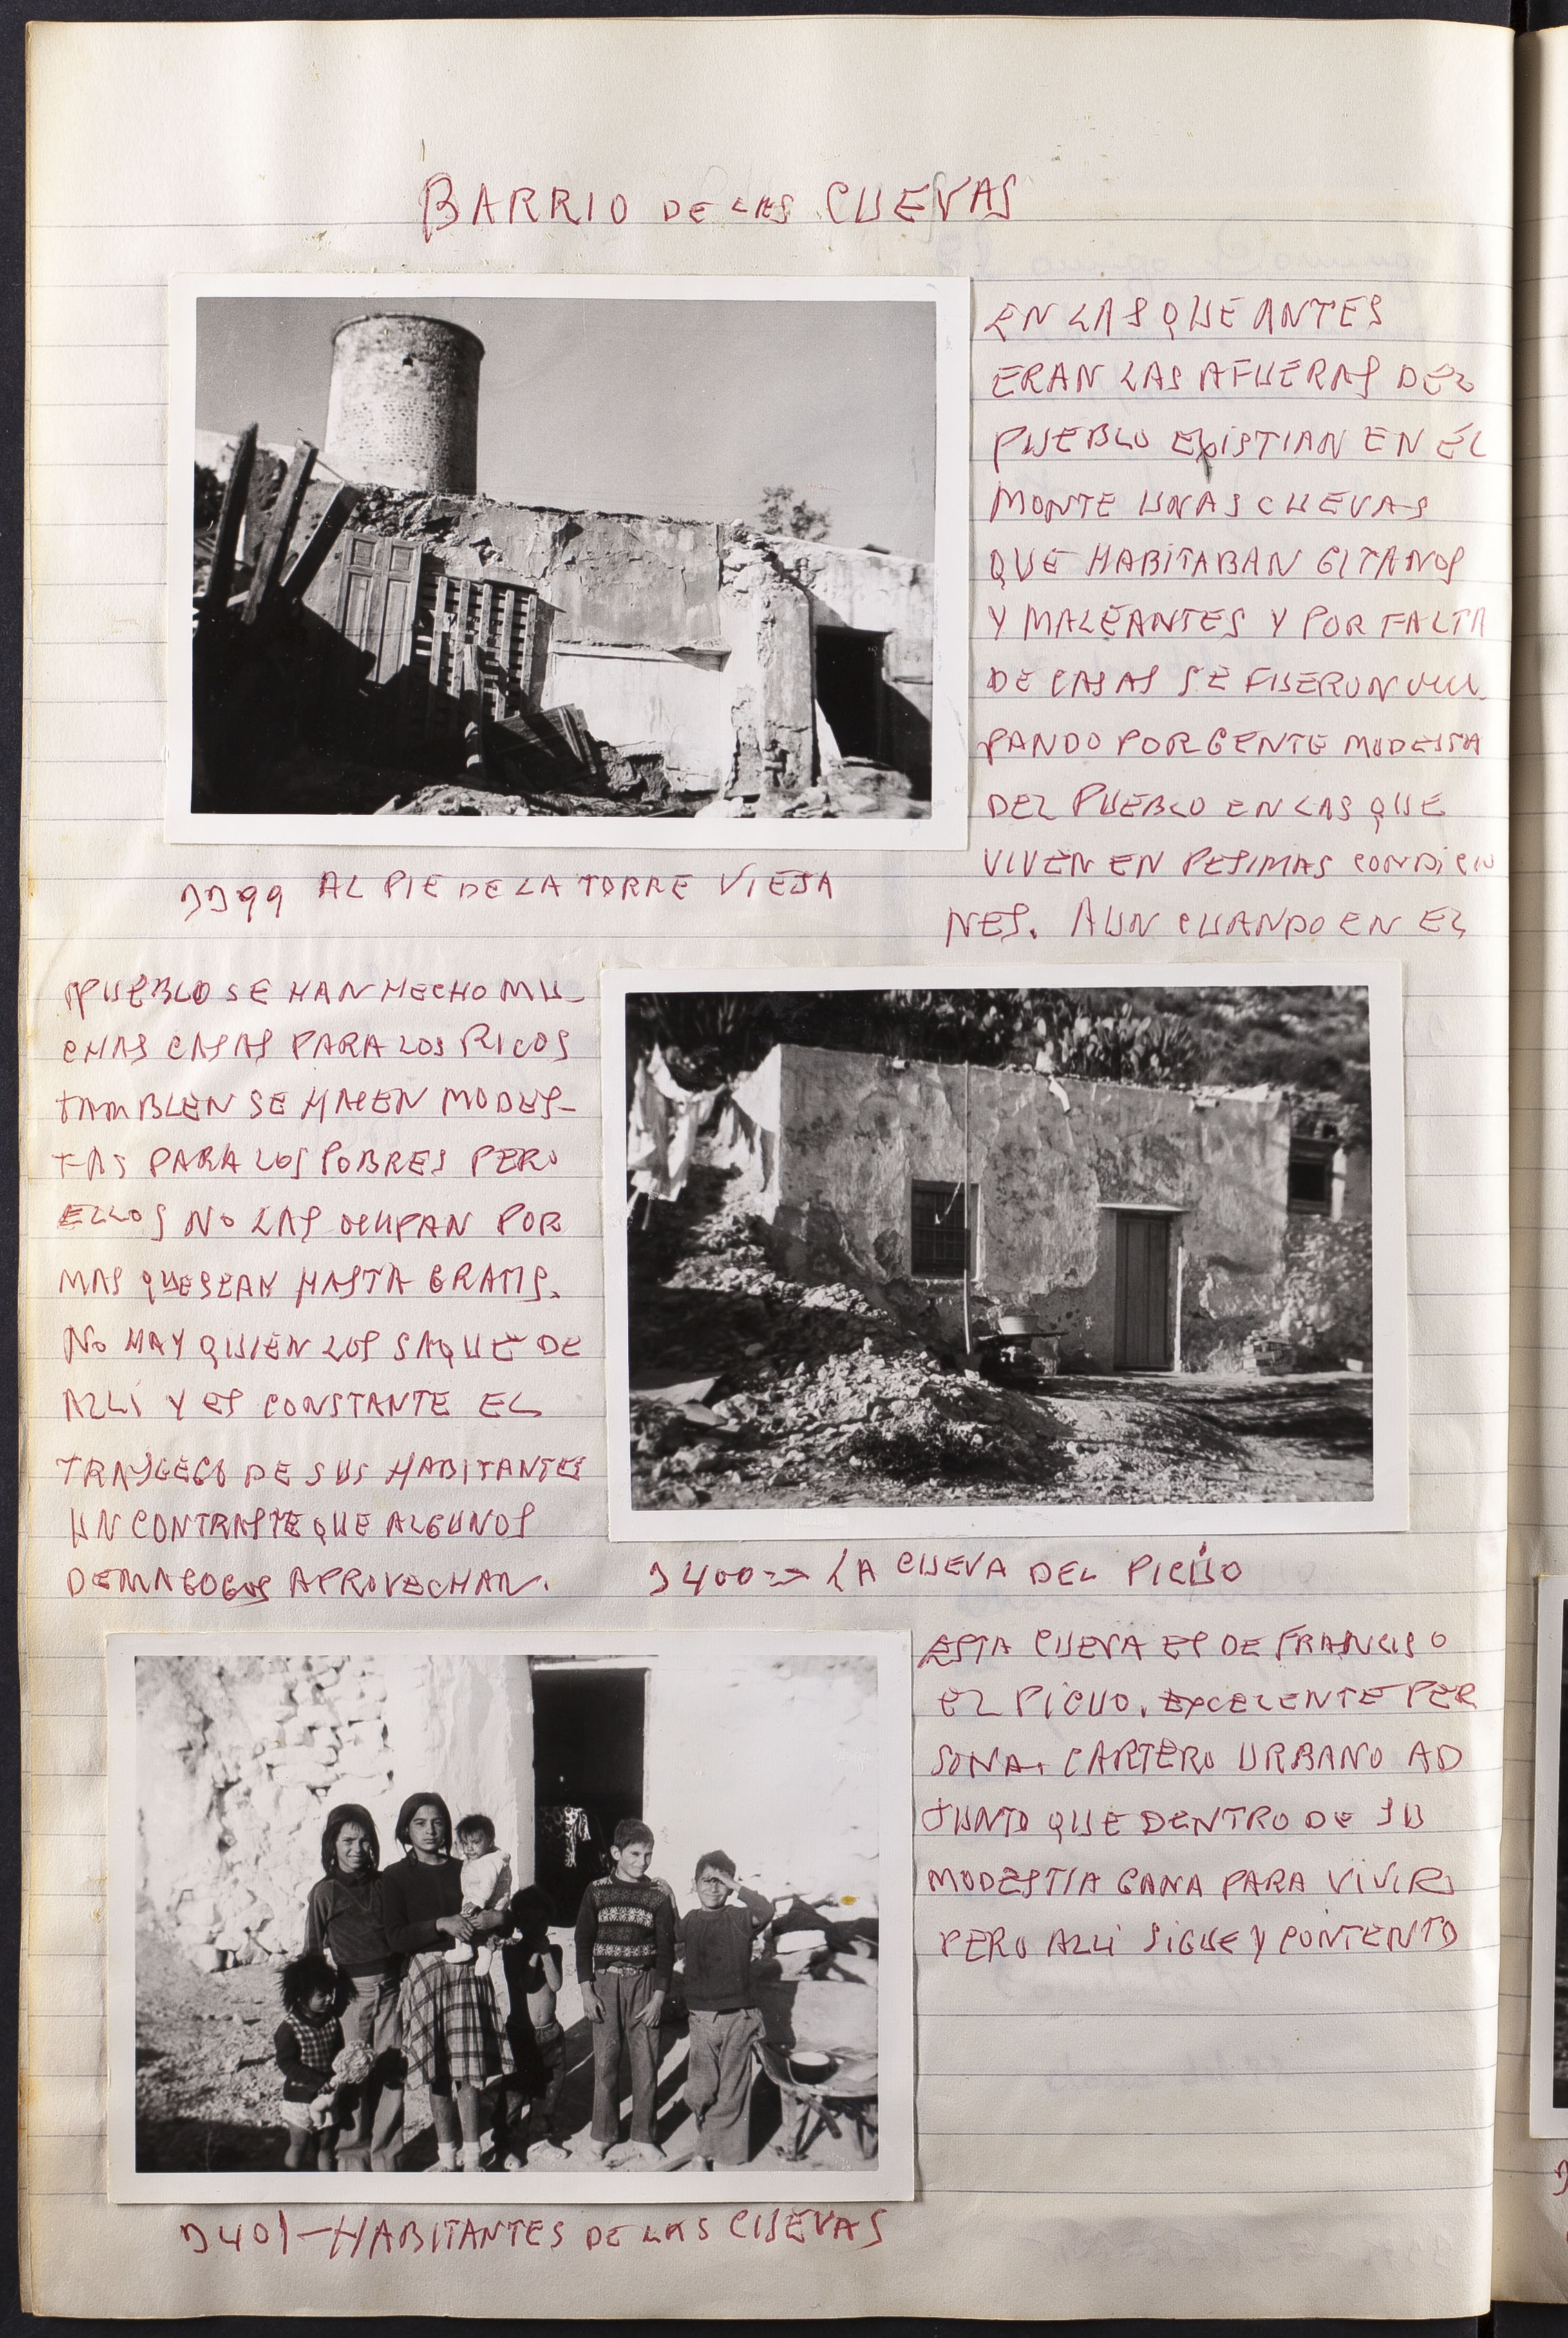 BARRIO DE LAS CUEVAS
EN LAS QUE ANTES
ERAN LAS AFUERAS DEL
PUEBLO EXISTIAN EN ÉL
MONTE UNAS CUEVAS
QUE HABITABAN GITANOS
Y MALEANTES Y POR FALTA
DE CASAS SE FUERON OCU
PANDO POR GENTE MODESTA
DEL PUEBLO EN LAS QUE
VIVEN EN PESIMAS CONDICIO
NES. AUN CUANDO EN EL
AL PIE DE LA TORRE VIEJA
PUEBLO SE HAN HECHO MU-
CHAS CASAS PARA LOS RICOS
TAMBIEN SE HACEN MODES-
TAS PARA LOS POBRES PERO
ELLOS NO LAS OCUPAN POR
MAS QUE SEAN HASTA GRATIS.
NO HAY QUIEN LOS SAQUE DE
ALLÍ Y ES CONSTANTE EL
TRASGEGO DE SUS HABITANTES
UN CONTRASTE QUE ALGUNOS
DEMAGOGOS APROVECHAN.
J400 => LA CUEVA DEL PICUO
ESTA CUEVA ES DE FRANCISO
EL PICUO. EXCELENTE PER
SONA. CARTERO URBANO AD
JUNTO QUE DENTRO DE SU
MODESTIA GANA PARA VIVIR
PERO ALLÍ SIGUE Y CONTENTO
J401 - HABITANTES DE LAS CUEVAS